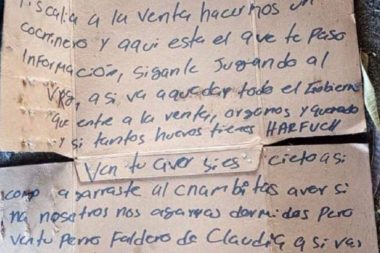 Fiscalia a la venta hacermos un
cocninero y aqui esta el que te paso
informaCión, siganle Jugando al
a si va aquedar todo el Gobiern
que ente a la venta, organos y
y si tantos huevos tienes HARFUCH
Ven tu aver si es cieto asi
como agarraste al cnambitas aver si
na nosotros nos agarras dormidos Pero
ventu Perro Faldero de Claudia a si vas